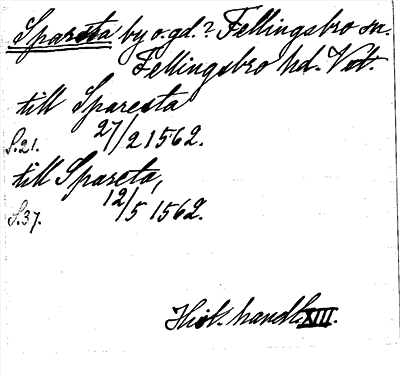 Sparsta by o. gd.? Fellingsbro sn.
Fellingsbro hd. Vst.
till Sparesta
S. 21. 27/2 1562.
till Spareta,
S. 37. 12/5 1562.
Hist. handl. XIII.